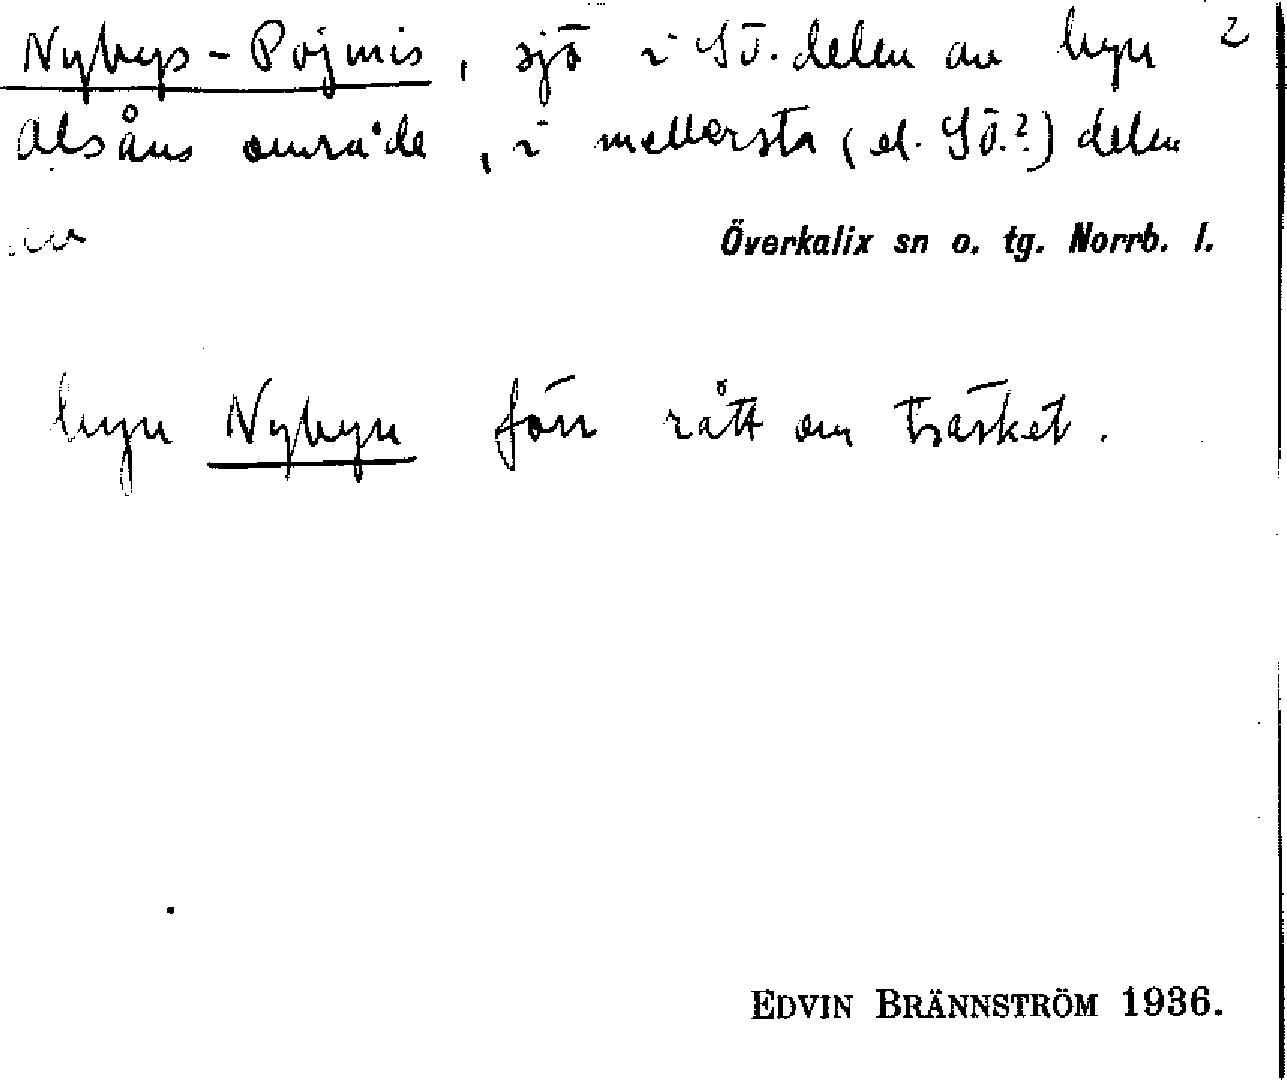 Nybys-Pojmis, sjö i SÖ. delen av byn 2
Alsåns område, i mellersta (el. SÖ.?) delen
av
Överkalix sn o. tg. Norrb. l.
byn Nybyn förr rått om träsket.
EDVIN BRÄNNSTRÖM 1936.